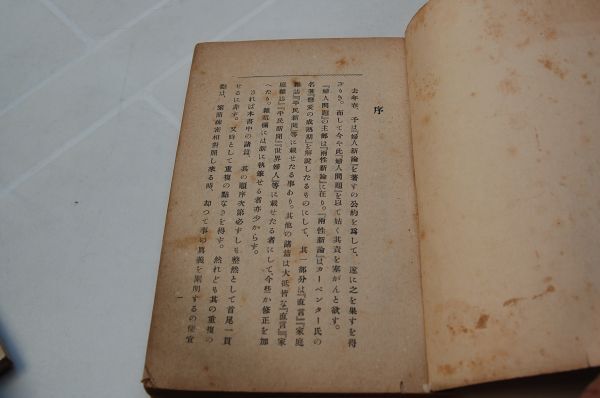 序
去年春、予は『婦人新論』を著すの公約を爲して、遂に之を果すを得
ざりき。而して今や此『婦人問題』を以て姑く其責を塞がんと欲す。
『婦人問題』の主部は『兩性新論』に在り。『兩性新論』はカーペンター氏の
名著『戀愛の成熟期』を解說したるものにして、其一部分は『直言』『家庭
雜誌』『平民新聞』等に載せたる事あり。其他の諸篇は大抵皆な『直言』『家
庭雜誌』『平民新聞』『世界婦人』等に載せたる者にして、今些か修正を加
へたり。雜錄欄には新に執筆せる者亦少からず。
されば本書中の諸篇、其の順序次第必ずしも整然として首尾一貫
せるに非ず。又時として重複の點なきを得ず。然れども其の重複の
觀は、索前後相對照し來る時、却つて事の眞義を闡明するの便宜
一